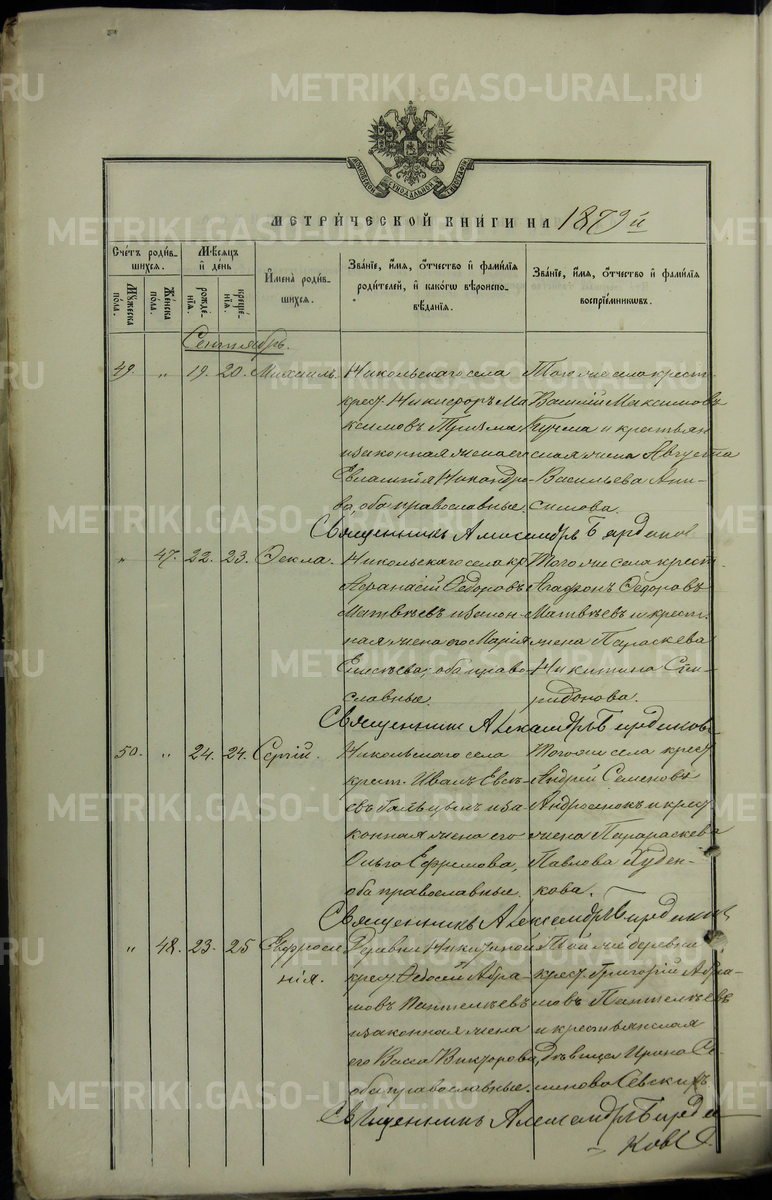 МЕТРИЧЕСКОЙ КНИГИ НА 1879й
Счетъ родившихся.
Мужеска пола.
Женска пола.
Мѣсяцъ и день
рожденія.
крещенія.
Имена родившихся.
Званіе, имя, отчество и фамилія родителей, и какого вѣроисповѣданія.
Званіе, имя, отчество и фамилія воспріемниковъ.
Сентябрь.
49. „ 19. 20. Михаилъ.
Никольскаго села
крест. Никифоръ Ма
ксимовъ
и законная жена его
Евлампія Никандро-
ва, оба православные.
Того же села крест.
Василій Максимовъ
и крестьян
ская жена Августа
Васильева Ани-
симова.
Священникъ Александръ Бирдюков
„ 47. 22. 23. Ѳекла.
Никольскаго села кр
Афанасій Ѳедоровъ
Матвѣевъ и закон-
ная жена его Марія
оба право-
славные.
Того же села крест.
Агафонъ Ѳедоровъ
Матвѣевъ и крест.
жена Параскева
Никитина Спи-
ридонова.
Священникъ Александръ Бирдюковъ
50. „ 24. 24. Сергій.
Никольскаго села
крест. Иванъ Евсѣ-
евъ и за-
конная жена его
Ольга Ефремова,
оба православные.
Того же села крест
Андрей Семеновъ
Андросенокъ и крест
жена Парараскева
Павлова Худен-
кова.
Священникъ Александръ Бирдюков
„ 48. 23. 25 Евфроси
нія.
Деревни Никитиной
крест. Ѳедосей Абра-
мовъ Пантелѣевъ
и законная жена
его Васса Викторова,
оба православные.
Той же деревни
крест. Григорій Абра-
мовъ Пантелѣевъ
и крестьянская
дѣвица Ирина Се-
менова
Священникъ Александръ Бирдю-
ковъ.
METRIKI.GASO-URAL.RU